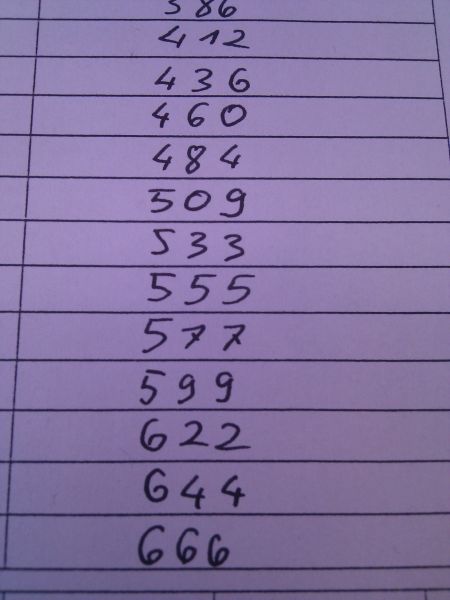 386
412
436
460
484
509
533
555
577
599
622
644
666